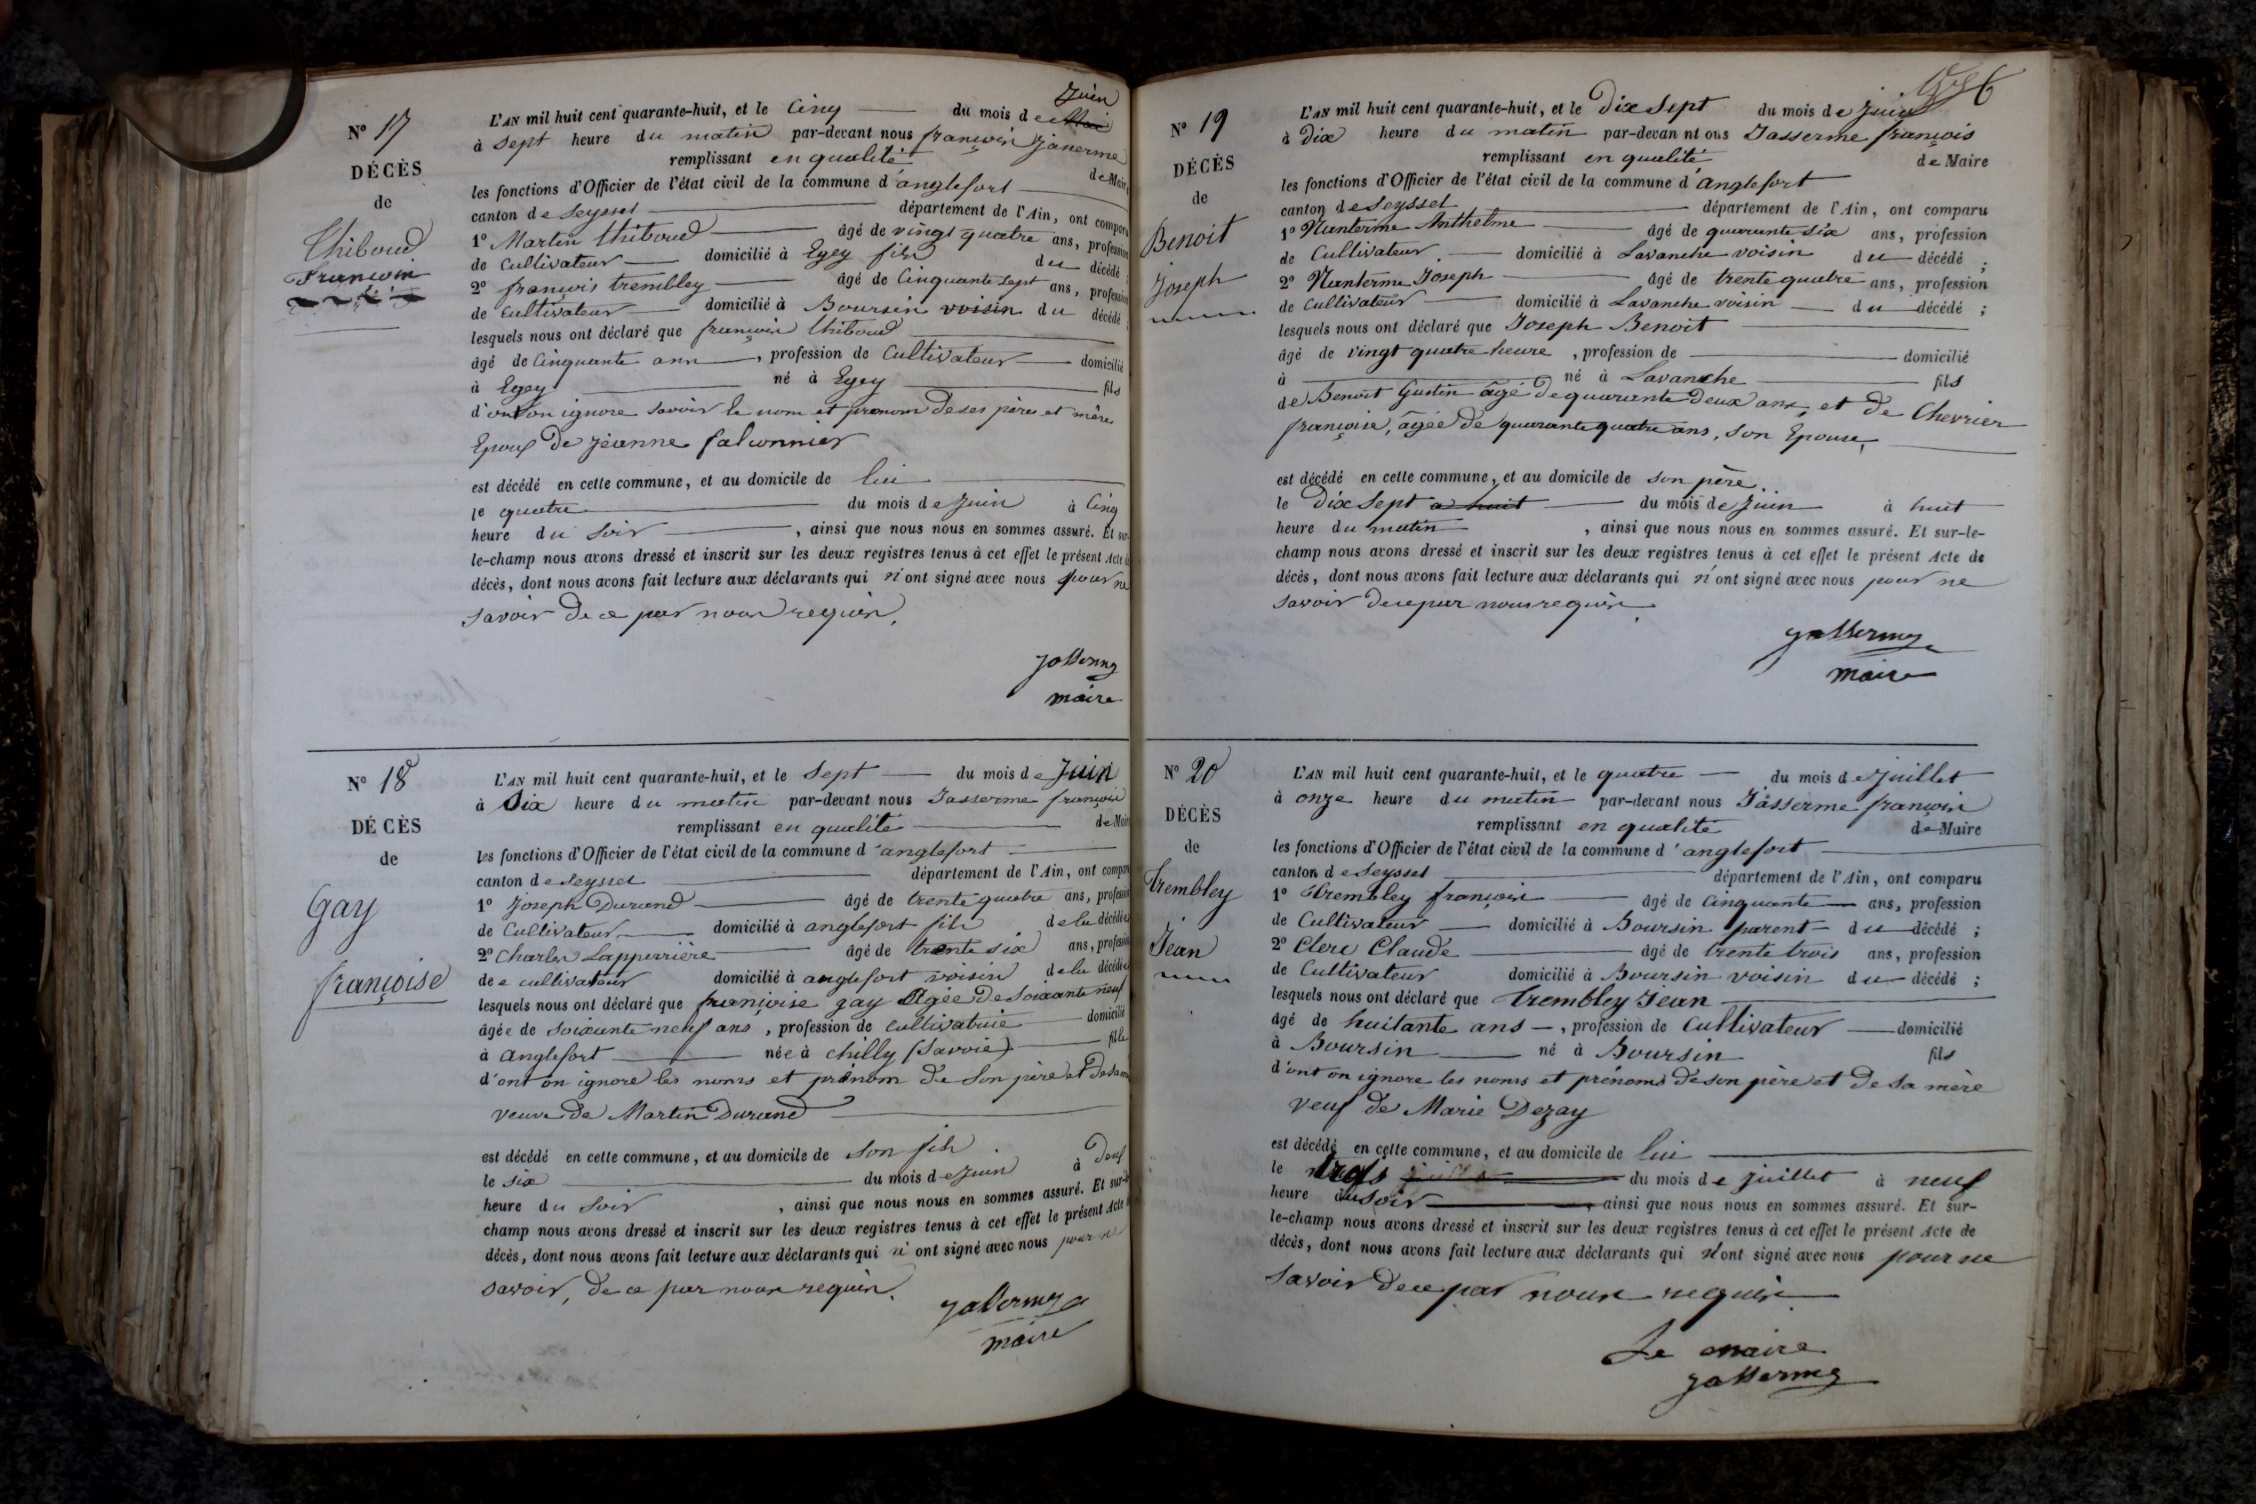 N° 17
DÉCÈS
de
Thiboud
François
L'AN mil huit cent quarante-huit, et le Cinq du mois de Mai Juin
à sept heure du matin par-devant nous françois Jasserme
remplissant en qualité de Maire
les fonctions d'Officier de l'état civil de la commune d'anglefort
canton de Seyssel département de l'Ain, ont comparu
1° Martin thiboud âgé de vingt quatre ans, profession
de Cultivateur domicilié à Egey fils du décédé ;
2° françois trembley âgé de Cinquante sept ans, profession
de Cultivateur domicilié à Boursin voisin du décédé ;
lesquels nous ont déclaré que françois thiboud
âgé de Cinquante ans , profession de Cultivateur domicilié
à Egey né à Egey fils
d'ont on ignore savoir le nom et prenom de ses pères et mères
Epoux de Jeanne falconnier
est décédé en cette commune, et au domicile de lui
le quatre du mois de Juin à Cinq
heure du soir , ainsi que nous nous en sommes assuré. Et sur-
le-champ nous avons dressé et inscrit sur les deux registres tenus à cet effet le présent Acte de
décès, dont nous avons fait lecture aux déclarants qui n'ont signé avec nous pour ne
savoir de ce par nous requis.
Jasserme
maire
N° 18
DÉCÈS
de
Gay
françoise
L'AN mil huit cent quarante-huit, et le sept du mois de Juin
à Dix heure du matin par-devant nous Jasserme françois
remplissant en qualité de Maire
les fonctions d'Officier de l'état civil de la commune d'anglefort
canton de Seyssel département de l'Ain, ont comparu
1° Joseph Durand âgé de trente quatre ans, profession
de Cultivateur domicilié à anglefort fils de la décédée
2° Charles Lapperrière âgé de trente six ans, profession
de e cultivateur domicilié à anglefort voisin de la décédée
lesquels nous ont déclaré que françoise gay Agée de soixante neuf
âgée de soixante neuf ans , profession de cultivatrice domicilié
à anglefort née à chilly (Savoie) fille
d'ont on ignore les noms et prénom de son père et de sa mère
veuve de Martin Durand
est décédé en cette commune, et au domicile de son fils
le six du mois de Juin à Deux
heure du soir , ainsi que nous nous en sommes assuré. Et sur-le-
champ nous avons dressé et inscrit sur les deux registres tenus à cet effet le présent Acte de
décès, dont nous avons fait lecture aux déclarants qui n'ont signé avec nous pour ne
savoir, de ce par nous requis.
Jasserme
maire
N° 19
DÉCÈS
de
Benoit
Joseph
L'AN mil huit cent quarante-huit, et le Dix Sept du mois de Juin
à Dix heure du matin par-devan nt ous Jasserme françois
remplissant en qualité de Maire
les fonctions d'Officier de l'état civil de la commune d'Anglefort
canton de Seyssel département de l'Ain, ont comparu
1° Nanterme Anthelme âgé de quarante six ans, profession
de Cultivateur domicilié à Lavanche voisin du décédé ;
2° Nanterme Joseph âgé de trente quatre ans, profession
de Cultivateur domicilié à Lavanche voisin du décédé ;
lesquels nous ont déclaré que Joseph Benoit
âgé de vingt quatre heure , profession de domicilié
à né à Lavanche fils
de Benoit Gustin âgé de quarante Deux ans, et de Chevrier
françoise, âgée de quarante quatre ans, son Epouse,
est décédé en cette commune, et au domicile de son père.
le Dix Sept a huit du mois de Juin à huit
heure du matin , ainsi que nous nous en sommes assuré. Et sur-le-
champ nous avons dressé et inscrit sur les deux registres tenus à cet effet le présent Acte de
décès, dont nous avons fait lecture aux déclarants qui n'ont signé avec nous pour ne
savoir de ce par nous requis.
Jasserme
maire
N° 20
DÉCÈS
de
trembley
Jean
L'AN mil huit cent quarante-huit, et le quatre du mois de Juillet
à onze heure du matin par-devant nous Jasserme françois
remplissant en qualité de Maire
les fonctions d'Officier de l'état civil de la commune d'anglefort
canton de Seyssel département de l'Ain, ont comparu
1° trembley françois âgé de Cinquante ans, profession
de Cultivateur domicilié à Boursin parent du décédé ;
2° Clerc Claude âgé de trente trois ans, profession
de Cultivateur domicilié à Boursin voisin du décédé ;
lesquels nous ont déclaré que trembley Jean
âgé de huitante ans , profession de Cultivateur domicilié
à Boursin né à Boursin fils
d'ont on ignore les noms et prénoms de son père et de sa mère
veuf de Marie Dezay
est décédé en cette commune, et au domicile de lui
le trois du mois de juillet à neuf
heure du soir , ainsi que nous nous en sommes assuré. Et sur-
le-champ nous avons dressé et inscrit sur les deux registres tenus à cet effet le présent Acte de
décès, dont nous avons fait lecture aux déclarants qui n'ont signé avec nous pour ne
savoir de ce par nous requis
Le maire
Jasserme